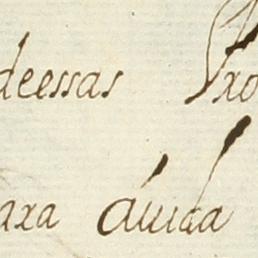 deessas Pro
ara áuida